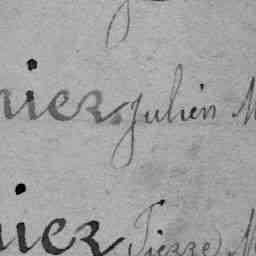 niez Julien M
niez Pierre M